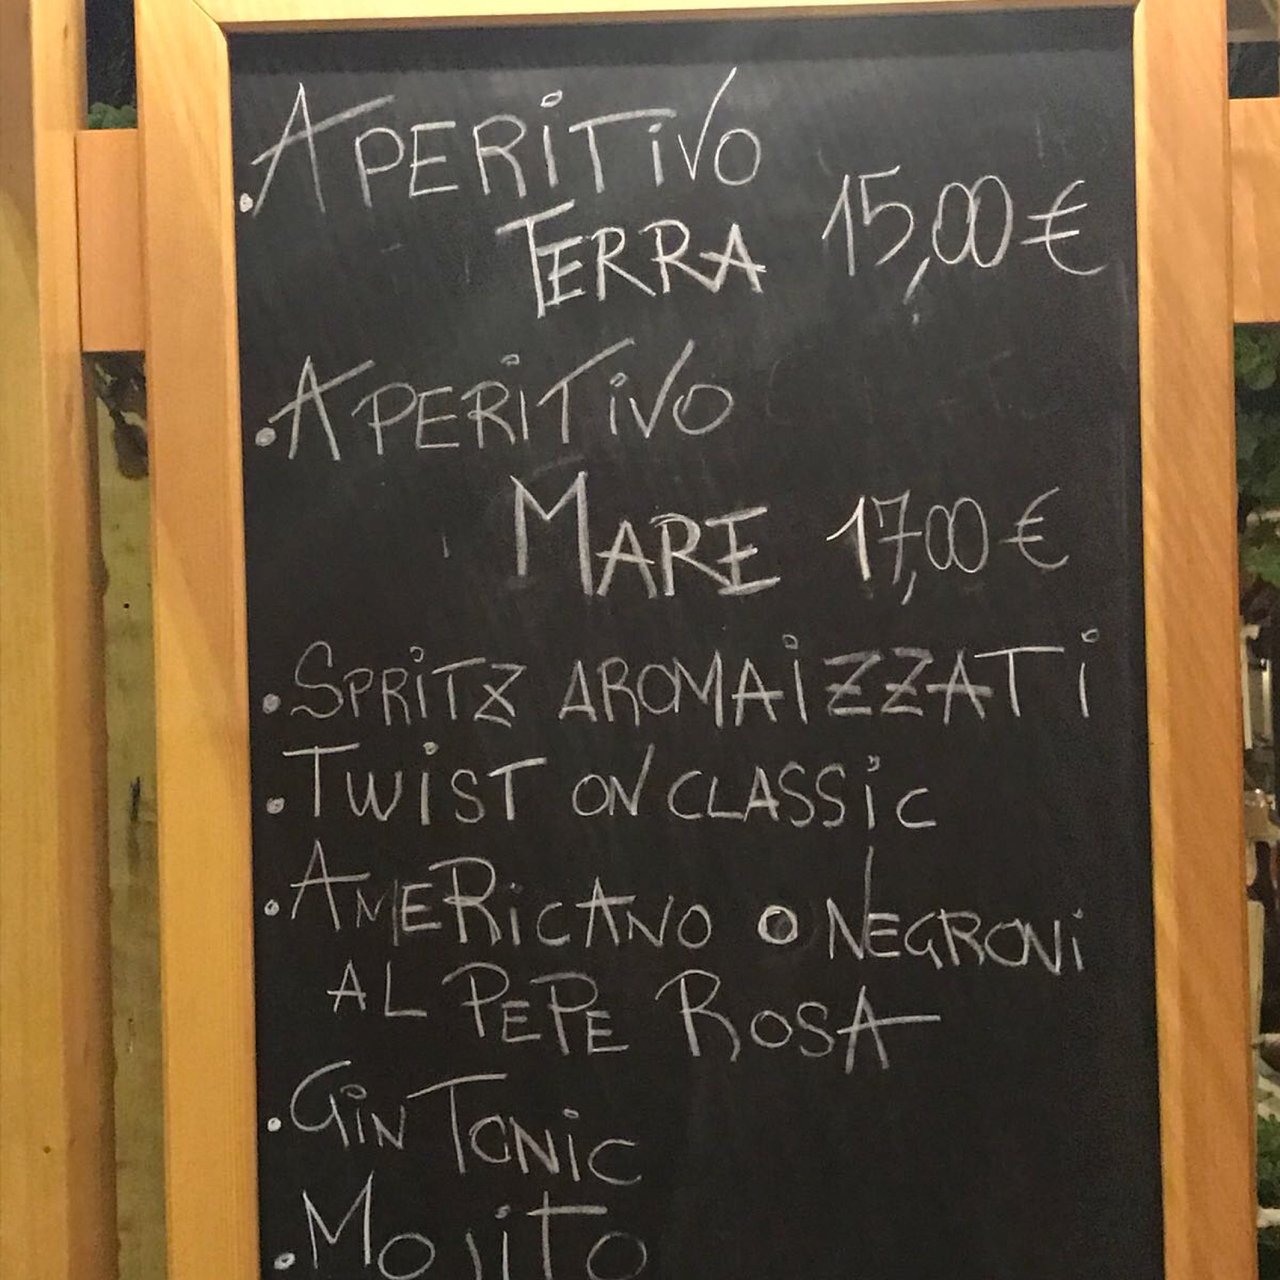 . APERITIVO
TERRA 15,00 €
. APERITIVO
MARE 17,00 €
. SPRITZ AROMAIZZATI
. TWIST ON CLASSIC
. AMERICANO O NEGRONI
AL PEPE ROSA
. GIN TONIC
. MOJITO